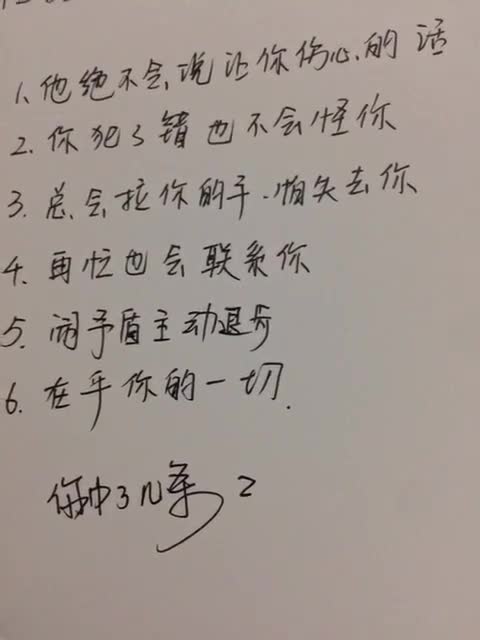 1、他绝不会说让你伤心的话
2、你犯了错也不会怪你
3、总会拉你的手、怕失去你
4、再忙也会联系你
5、闹矛盾主动退步
6、在乎你的一切.
你中了几条?